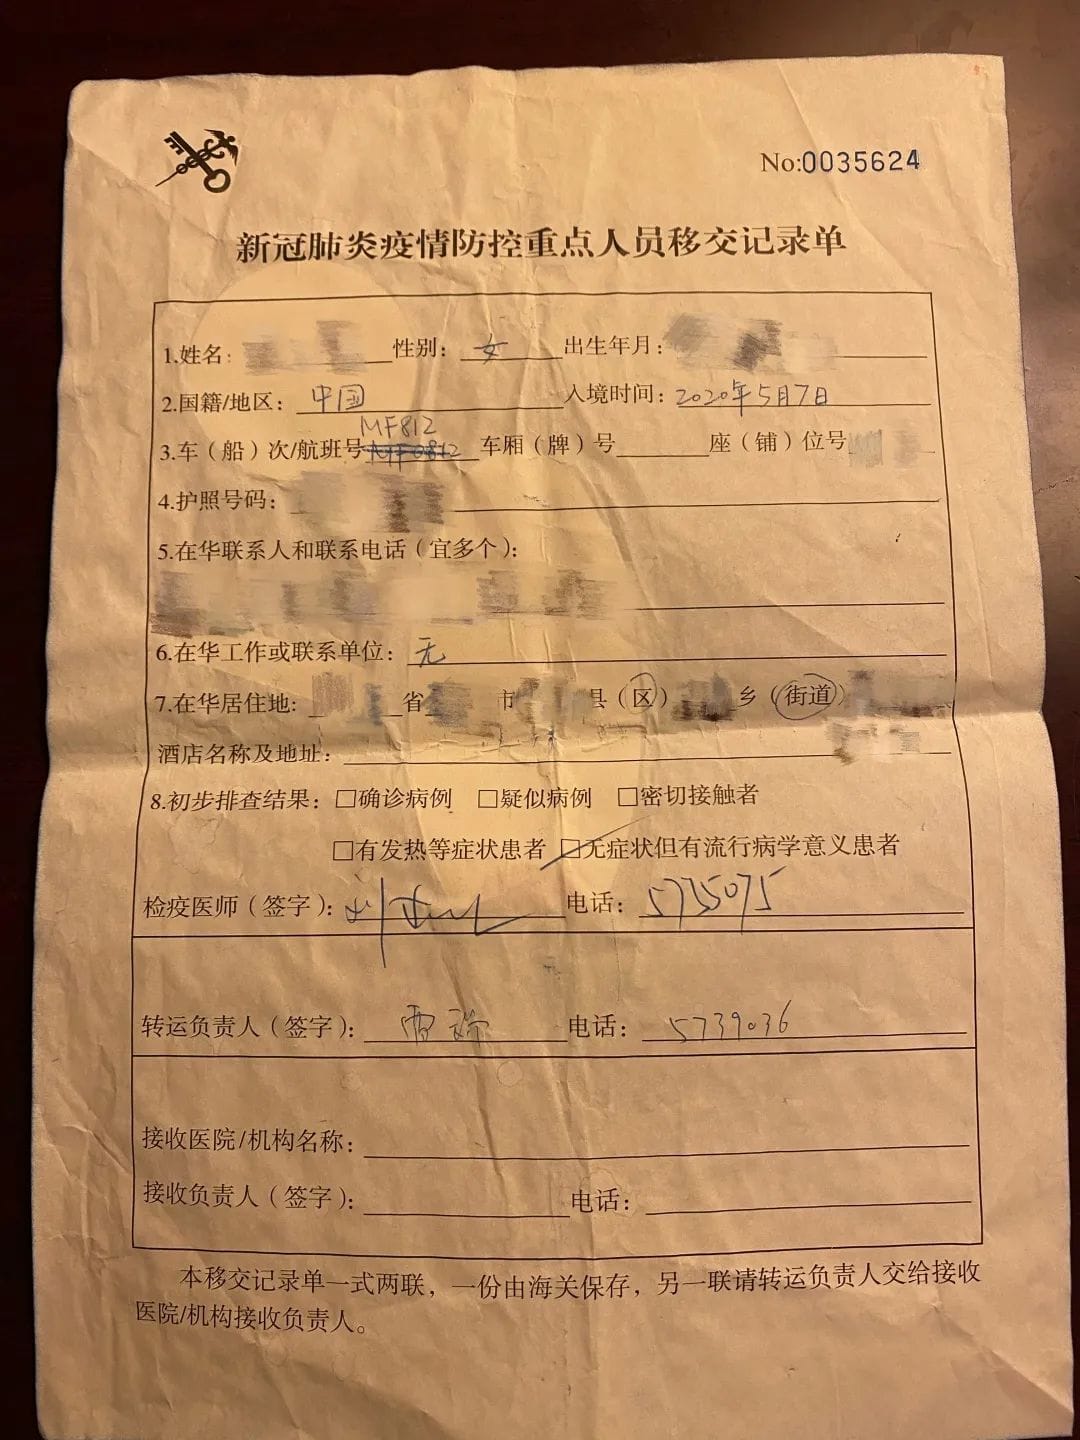 No:0035624
新冠肺炎疫情防控重点人员移交记录单
1.姓名: 性别: 女 出生年月:
2.国籍/地区: 中国 入境时间: 2020年5月7日
MF812
3.车（船）次/航班号 MF0812 车厢（牌）号 座（铺）位号
4.护照号码:
5.在华联系人和联系电话（宜多个）:
6.在华工作或联系单位: 无
7.在华居住地: 省 市 县（区） 乡（街道）
酒店名称及地址:
8.初步排查结果: □确诊病例 □疑似病例 □密切接触者
□有发热等症状患者 □无症状但有流行病学意义患者
检疫医师（签字）: 电话: 5735075
转运负责人（签字）: 电话: 5739036
接收医院/机构名称:
接收负责人（签字）: 电话:
本移交记录单一式两联，一份由海关保存，另一联请转运负责人交给接收
医院/机构接收负责人。